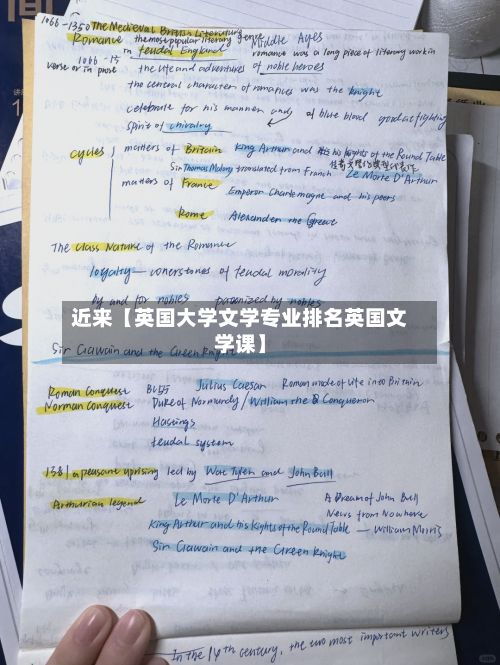 1066-1350 The Medieval British Literature
Romance the most popular literary genre Middle Ages
in feudal England romance was a long piece of literary work in
1066 - 15
verse or in prose the life and adventures of noble heroes
the central character of romances was the knight
celebrate for his manner and of blue blood good at fighting
spirit of chivalry
cycles matters of Britain King Arthur and his knights of the Round Table
Sir Thomas Malory translated from French Le Morte D'Arthur
matters of France Emperor Charlemagne and his peers
Rome Alexander the Great
The Class Nature of the Romance
loyalty — cornerstones of feudal morality
by and for nobles patronized by nobles
近来【英国大学文学专业排名英国文
学课】
Sir Gawain and the Green Knight
Roman Conquest BC55 Julius Caesar Roman mode of life into Britain
Norman Conquest Duke of Normandy / William the Conqueror
Hastings
feudal system
1381 a peasant uprising led by Wat Tyler and John Ball
Arthurian legend Le Morte D'Arthur A Dream of John Ball
News from Nowhere
King Arthur and his Kights of the Round Table — William Morris
Sir Gawain and the Green Knight
In the 14th century, the two most important writers